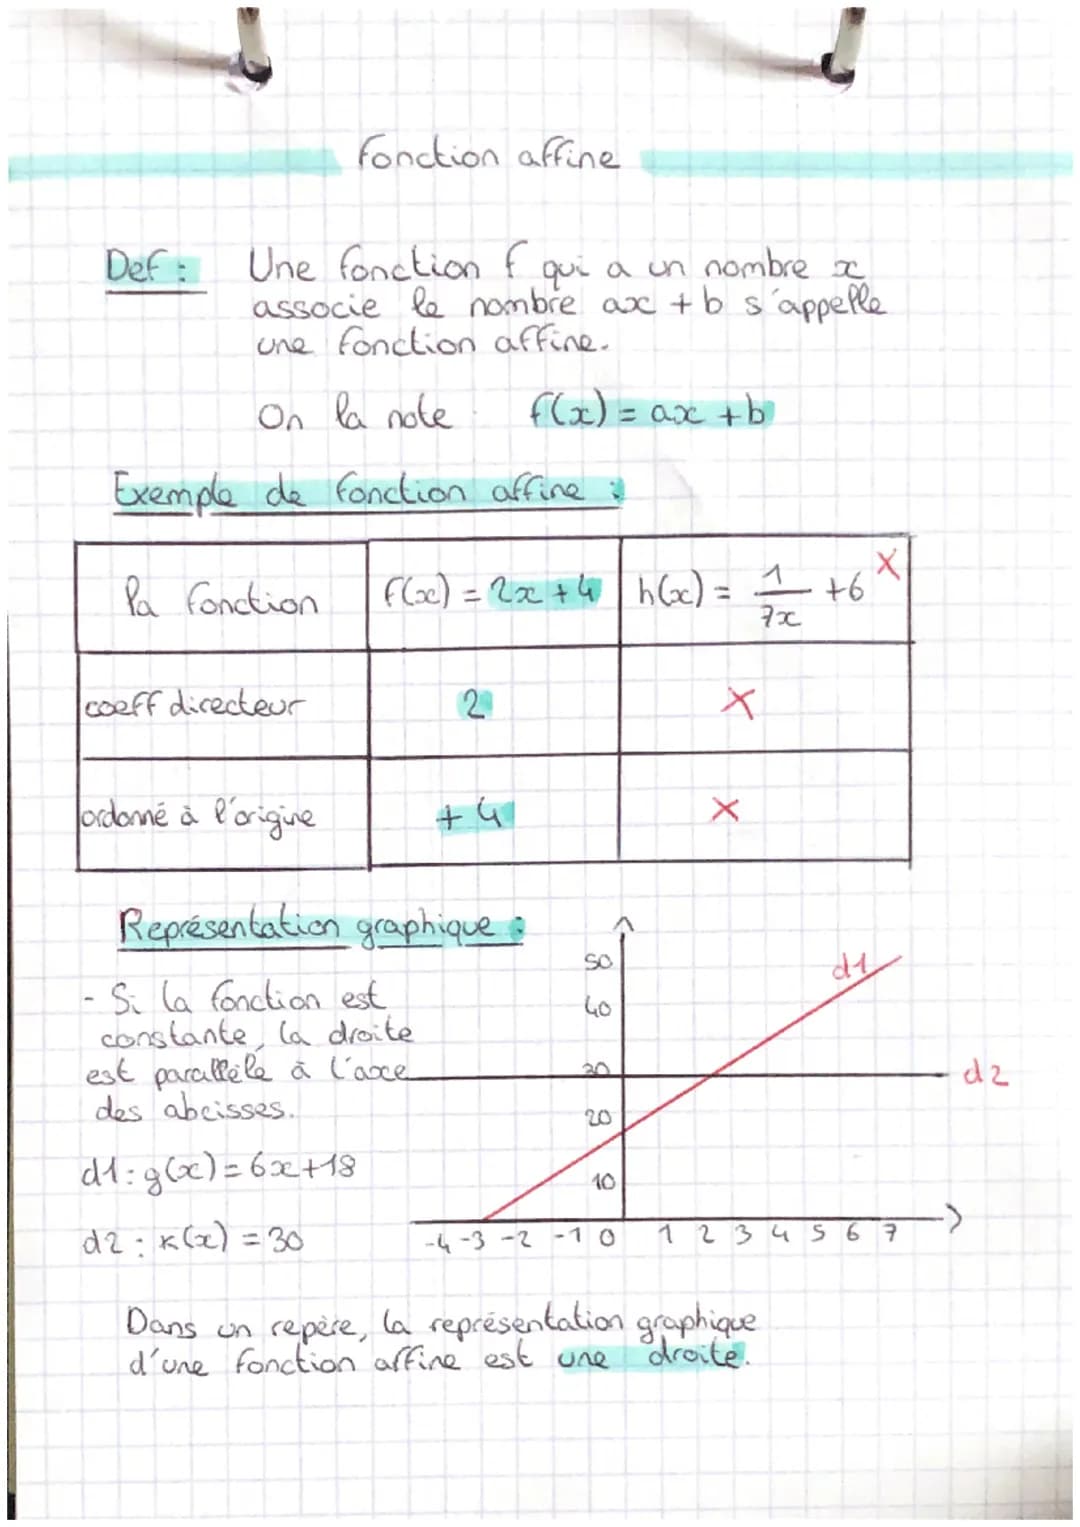 Fonction affine
Def : Une fonction f qui a un nombre x
associe le nombre ax + b s'appelle
une fonction affine.
On la note f(x) = ax + b
Exemple de fonction affine :
la fonction f(x) = 2x + 4 h(x) = 1/7x + 6 X
coeff directeur 2 X
ordonné à l'origine + 4 X
Représentation graphique :
- Si la fonction est
constante, la droite
est parallèle à l'axe
des abcisses.
d1 : g(x) = 6x + 18
d2 : K(x) = 30
50
40
30
20
10
d1
d2
-4 -3 -2 -1 0 1 2 3 4 5 6 7
Dans un repère, la représentation graphique
d'une fonction affine est une droite.